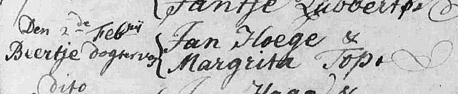 Jantje Lubbert
Den 2de Febrij
Beertje dogter v. { Jan Hoege &
Margrita Tops
dito